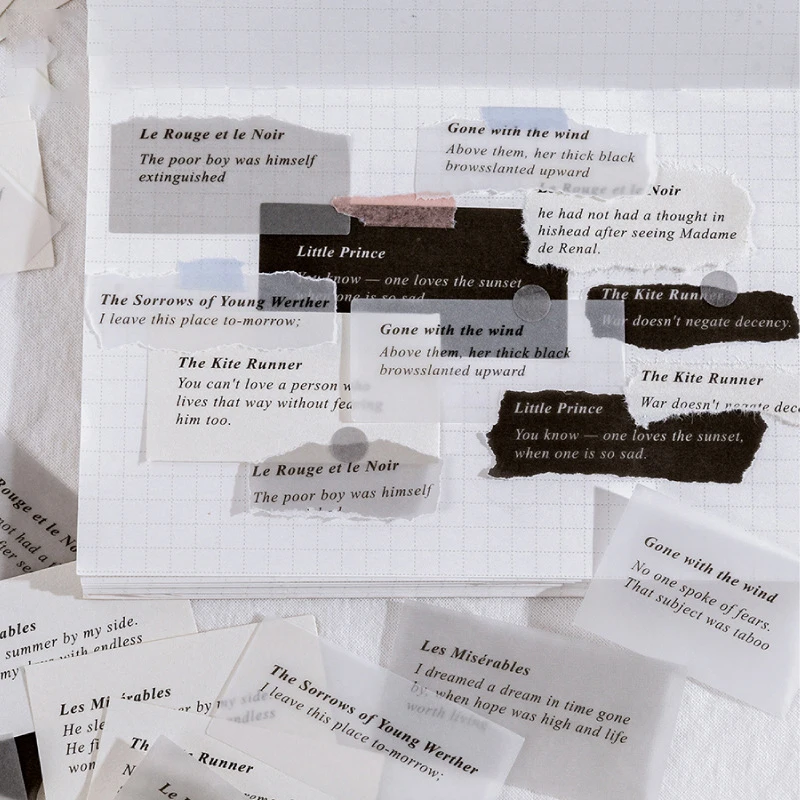 Le Rouge et le Noir
The poor boy was himself
extinguished
Gone with the wind
Above them, her thick black
browsslanted upward
Le Rouge et le Noir
he had not had a thought in
hishead after seeing Madame
de Renal.
Little Prince
You know — one loves the sunset
one is so sad
The Sorrows of Young Werther
I leave this place to-morrow;
The Kite Runner
War doesn't negate decency.
Gone with the wind
Above them, her thick black
browsslanted upward
The Kite Runner
You can't love a person who
lives that way without fearing
him too.
The Kite Runner
War doesn't negate dece
Little Prince
You know — one loves the sunset,
when one is so sad.
Le Rouge et le Noir
The poor boy was himself
Rouge et le No
not had a t
fter se
Gone with the wind
No one spoke of fears.
That subject was taboo
ables
summer by my side.
my days with endless
Les Misérables
I dreamed a dream in time gone
by, when hope was high and life
worth living
The Sorrows of Young Werther
I leave this place to-morrow;
Les Misérables
He sle
He fi
won
my side
endless
The Runner
N
Le